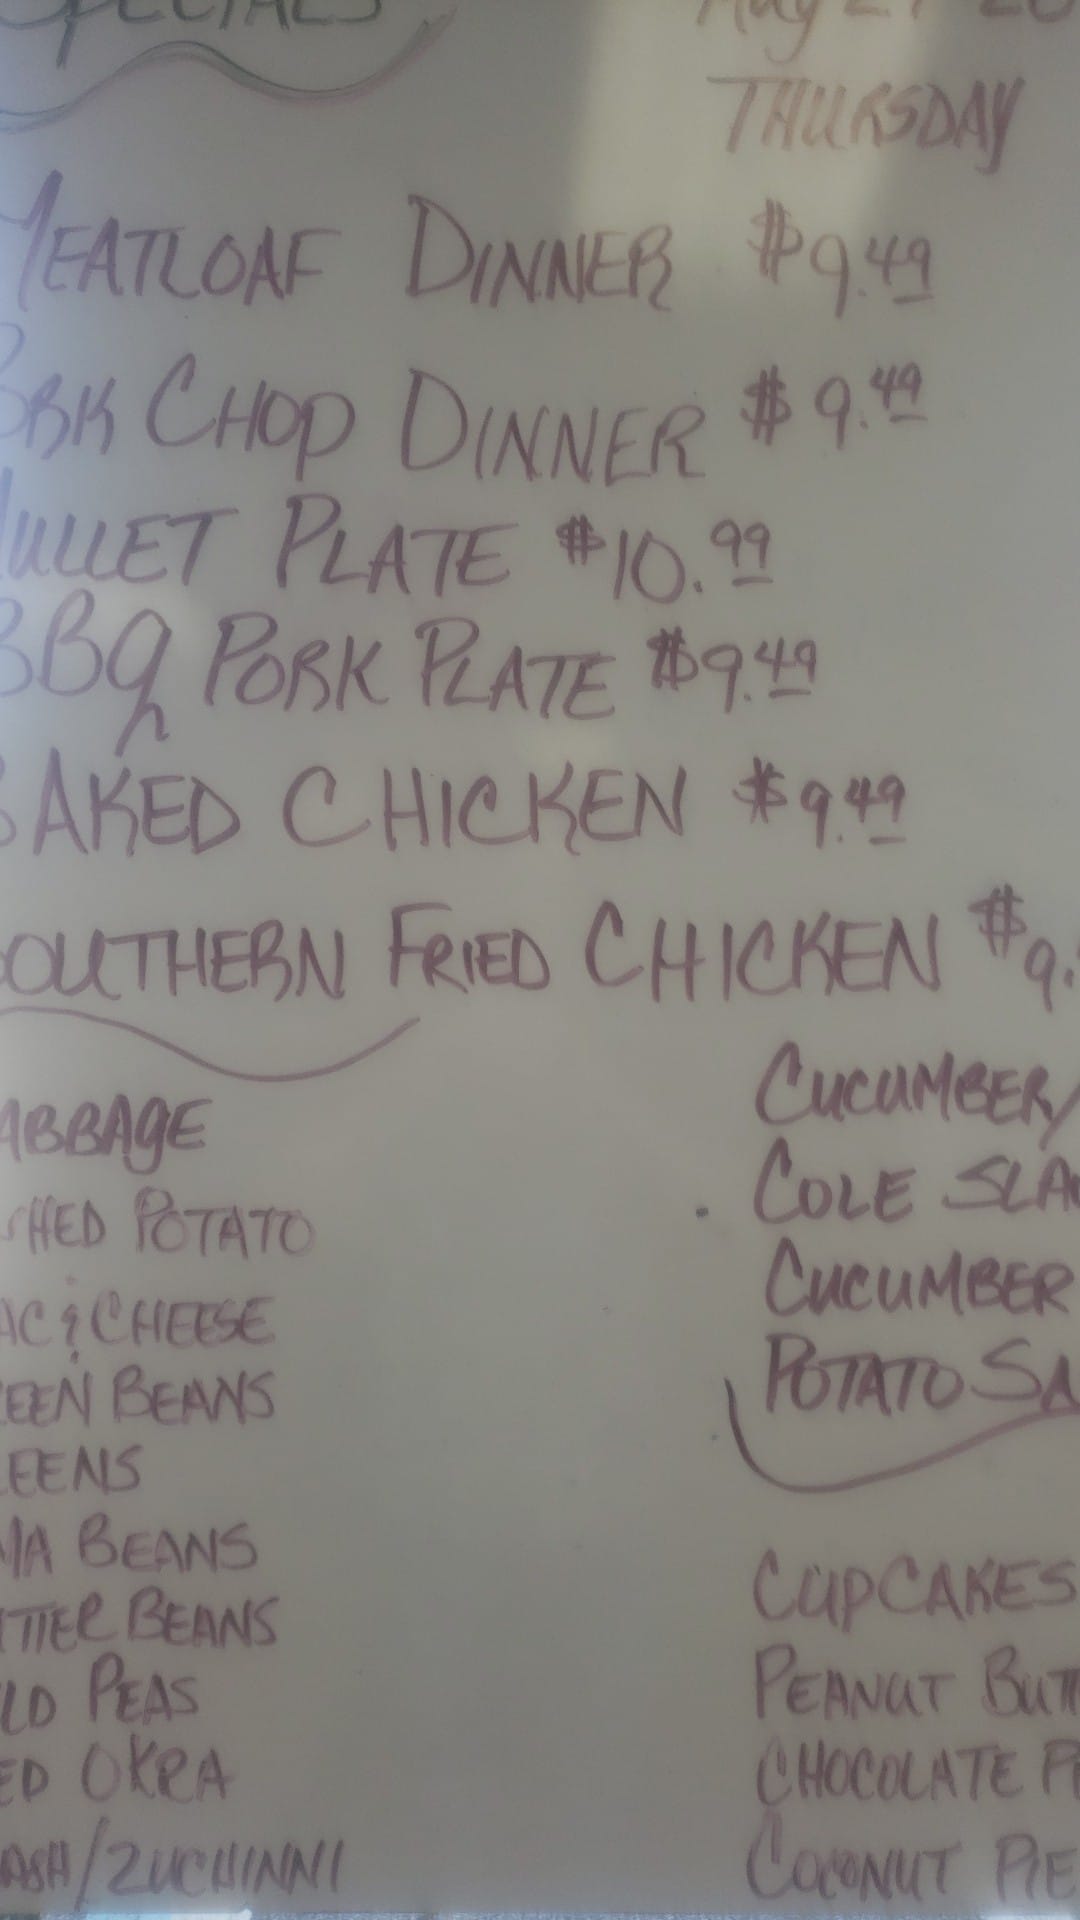 SPECIALS
May 27 20
THURSDAY
MEATLOAF DINNER $9.49
PORK CHOP DINNER $9.49
MULLET PLATE $10.99
BBQ PORK PLATE $9.49
BAKED CHICKEN $9.49
SOUTHERN FRIED CHICKEN $9.
ABBAGE
SHED POTATO
AC & CHEESE
EEN BEANS
EENS
MA BEANS
TTER BEANS
LD PEAS
ED OKRA
ASH/ZUCHINNI
CUCUMBER/
COLE SLA
CUCUMBER
POTATO SA
CUPCAKES
PEANUT BUTT
CHOCOLATE PI
COCONUT PIE